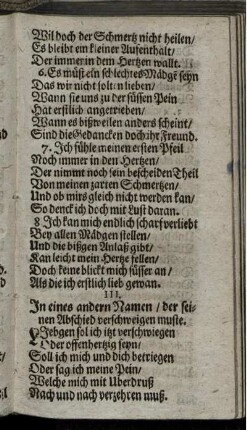 Wil doch der Schmertz nicht heilen/
Es bleibt ein kleiner Aufenthalt/
Der immer in dem Hertzen wallt.
6. Es müst ein schlechtes Mädgē seyn
Das wir nicht solten lieben/
Wann sie uns zu der süssen Pein
Hat erstlich angetrieben/
Wann es bißweilen anders scheint/
Sind die Gedancken doch ihr Freund.
7. Ich fühle meinen erstē Pfeil
Noch immer in den Hertzen/
Der nimmt noch sein bescheiden Theil
Von meinen zarten Schmertzen/
Und ob mirs gleich nicht werden kan/
So denck ich doch mit Lust daran.
8 Ich kan mich endlich scharf verliebt
Bey allen Mädgen stellen/
Und die bißgen Anlaß gibt/
Kan leicht mein Hertze fellen/
Doch keine blickt mich süsser an/
Als die ich erstlich lieb gewan.
III.
In eines andern Namen / der sei-
nen Abschied verschweigen muste.
Liebgen sol ich itzt verschwiegen
Oder offenhertzig seyn/
Soll ich mich und dich betriegen
Oder sag ich meine Pein/
Welche mich mit Uberdruß
Nach und nach verzehren muß.